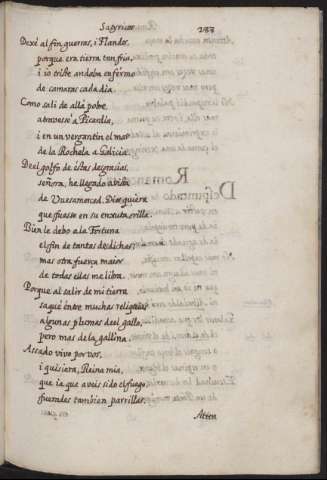 Satyricos
Dexé al fin guerras, i Flandes,
porque era tierra tan fria,
i io triste andaba enfermo
de camaras cada dia.
Como sali de allá pobre,
atravesse á Picardía,
i en un vergantin el mar
de la Rochela á Galicia.
Deel golfo de estas desgracias,
señora, he llegado á vista
de Vuesamerced. Dios quiera
que fuesse en su enxuta orilla.
Bien le debo a la Fortuna
el fin de tantas desdichas;
mas otra fuerza maior
de todas ellas me libra.
Porque al salir de mi tierra
saqué entre muchas reliquias
algunas plumas deel gallo,
pero mas de la gallina.
Assado vivo por vos,
i quisiera, Reina mia,
que ia que aveis sido el fuego,
fuerades tambien parrillas.